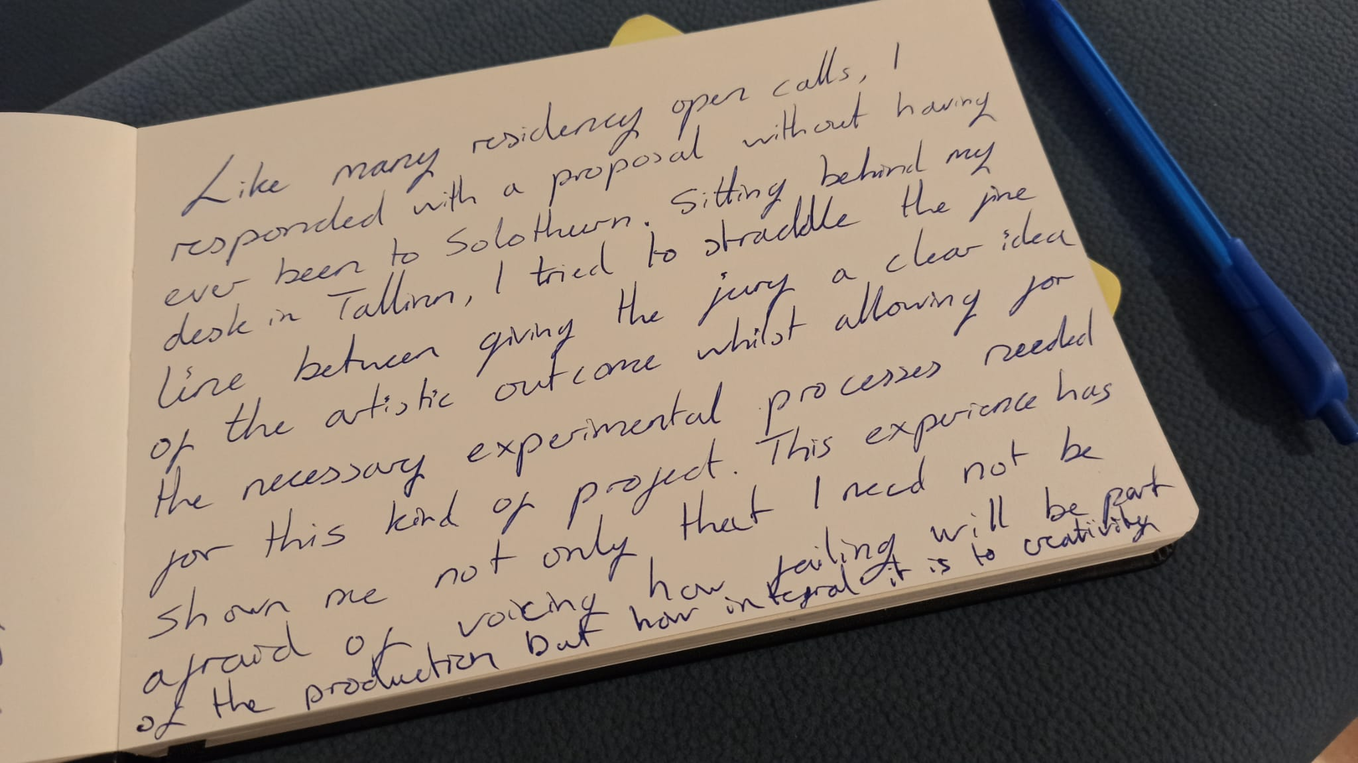 Like many residency open calls, I
responded with a proposal without having
ever been to Solothurn. Sitting behind my
desk in Tallinn, I tried to straddle the fine
line between giving the jury a clear idea
of the artistic outcome whilst allowing for
the necessary experimental processes needed
for this kind of project. This experience has
shown me not only that I need not be
afraid of voicing how failing will be part
of the production but how integral it is to creativity